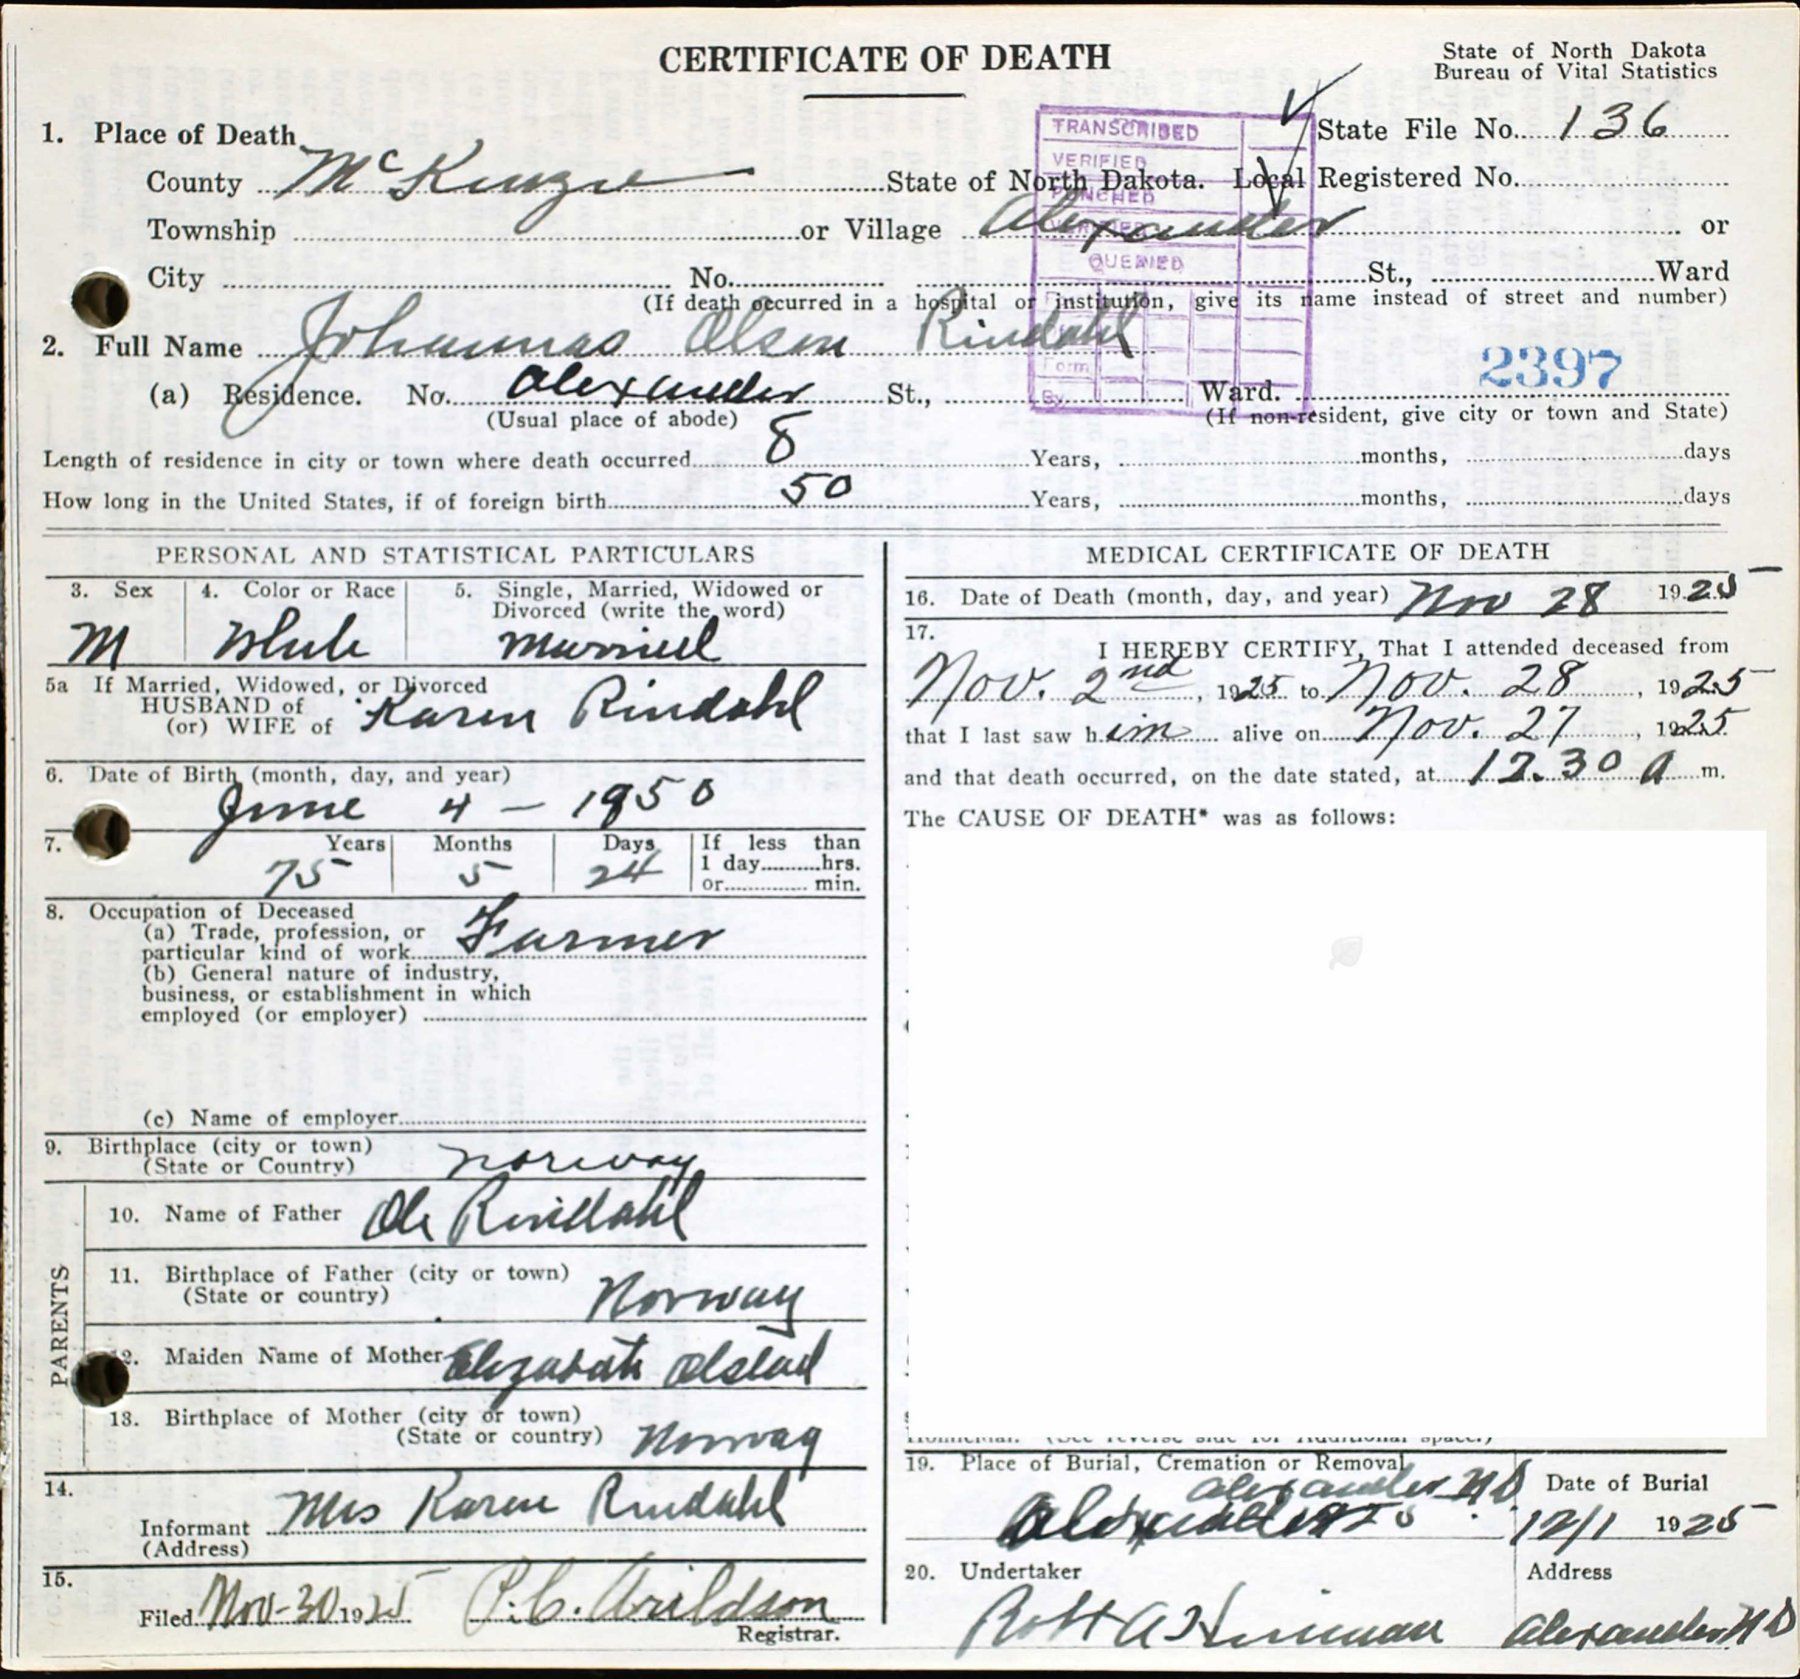 CERTIFICATE OF DEATH
State of North Dakota
Bureau of Vital Statistics
TRANSCRIBED
VERIFIED
PUNCHED
VERIFIED
QUERIED
Form
By
State File No. 136
1. Place of Death
County McKenzie State of North Dakota. Local Registered No.
Township or Village Alexander or
City No. St., Ward
(If death occurred in a hospital or institution, give its name instead of street and number)
2. Full Name Johannas Olson Rindahl
2397
(a) Residence. No. Alexander St., Ward.
(Usual place of abode) (If non-resident, give city or town and State)
Length of residence in city or town where death occurred 8 Years, months, days
How long in the United States, if of foreign birth 50 Years, months, days
PERSONAL AND STATISTICAL PARTICULARS
3. Sex 4. Color or Race 5. Single, Married, Widowed or
Divorced (write the word)
M White Married
5a If Married, Widowed, or Divorced
HUSBAND of
(or) WIFE of Karen Rindahl
6. Date of Birth (month, day, and year)
June 4 - 1850
7. Years Months Days If less than
1 day hrs.
or min.
75 5 24
8. Occupation of Deceased
(a) Trade, profession, or
particular kind of work Farmer
(b) General nature of industry,
business, or establishment in which
employed (or employer)
(c) Name of employer
9. Birthplace (city or town)
(State or Country) Norway
PARENTS
10. Name of Father Ole Rindahl
11. Birthplace of Father (city or town)
(State or country) Norway
12. Maiden Name of Mother Elizabath Olstad
13. Birthplace of Mother (city or town)
(State or country) Norway
14.
Informant Mrs Karen Rindahl
(Address)
15.
Filed Nov-30 1925 P.C. Arildson
Registrar.
MEDICAL CERTIFICATE OF DEATH
16. Date of Death (month, day, and year) Nov 28 1925
17.
I HEREBY CERTIFY, That I attended deceased from
Nov. 2nd, 1925 to Nov. 28, 1925
that I last saw him alive on Nov. 27, 1925
and that death occurred, on the date stated, at 12.30 a m.
The CAUSE OF DEATH* was as follows:
19. Place of Burial, Cremation or Removal Date of Burial
Alexander ND
12/1 1925
20. Undertaker Address
Robt A Alexander, ND